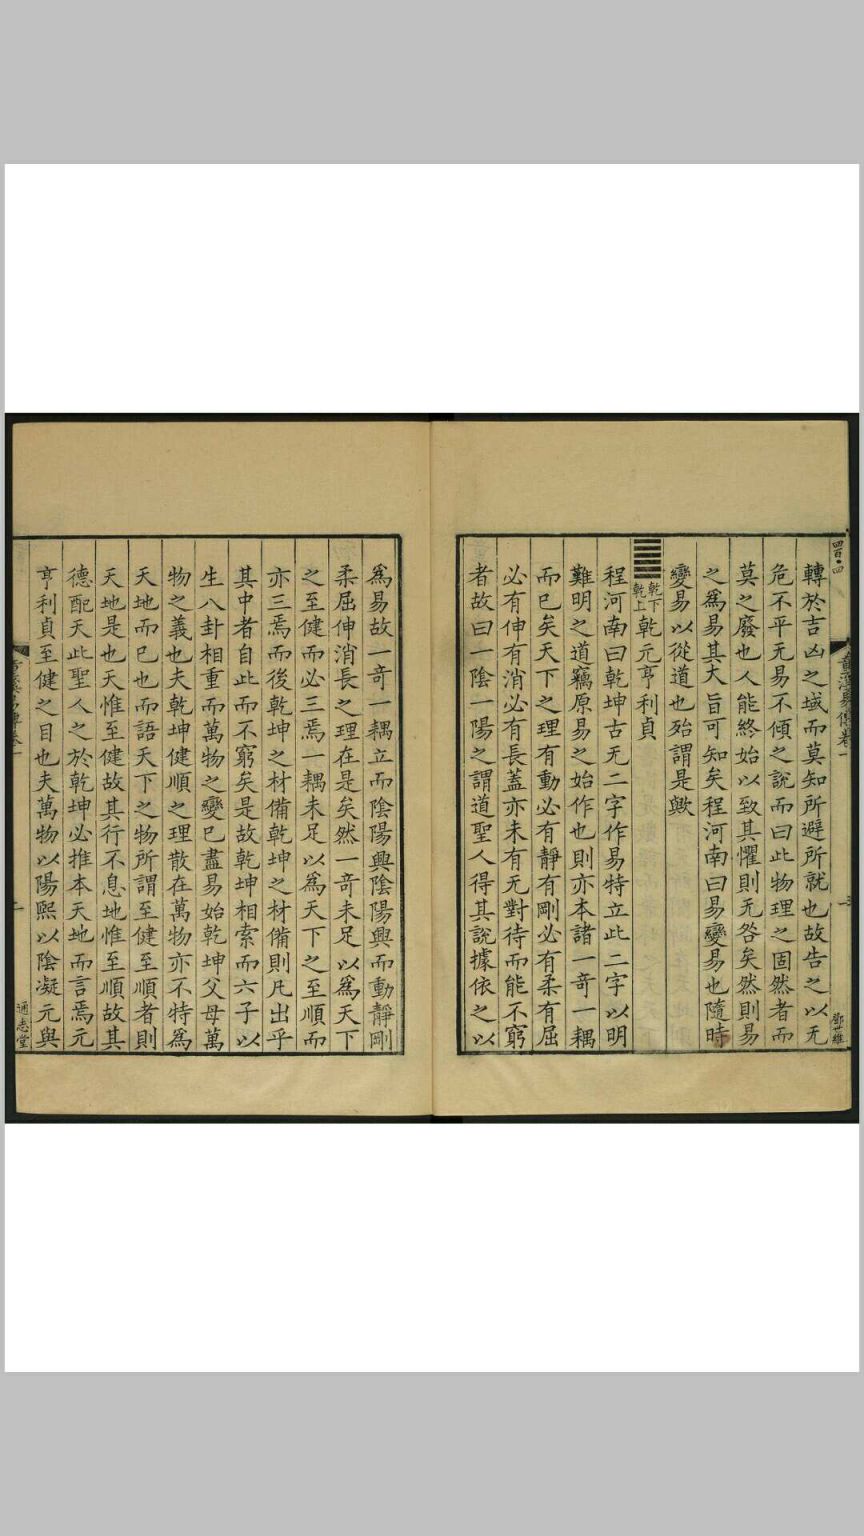 轉於吉凶之域而莫知所避所就也故告之以无
危不平无易不傾之說而曰此物理之固然者而
莫之廢也人能終始以致其懼則无咎矣然則易
之爲易其大旨可知矣程河南曰易變易也隨時
變易以從道也殆謂是歟
乾下
乾上
乾元亨利貞
程河南曰乾坤古无二字作易特立此二字以明
難明之道竊原易之始作也則亦本諸一奇一耦
而已矣天下之理有動必有靜有剛必有柔有屈
必有伸有消必有長蓋亦未有无對待而能不窮
者故曰一陰一陽之謂道聖人得其說據依之以
爲易故一奇一耦立而陰陽興陰陽興而動靜剛
柔屈伸消長之理在是矣然一奇未足以爲天下
之至健而必三焉一耦未足以爲天下之至順而
亦三焉而後乾坤之材備乾坤之材備則凡出乎
其中者自此而不窮矣是故乾坤相索而六子以
生八卦相重而萬物之變已盡易始乾坤父母萬
物之義也夫乾坤健順之理散在萬物亦不特爲
天地而已也而語天下之物所謂至健至順者則
天地是也天惟至健故其行不息地惟至順故其
德配天此聖人之於乾坤必推本天地而言焉元
亨利貞至健之目也夫萬物以陽熙以陰凝元與
通志堂